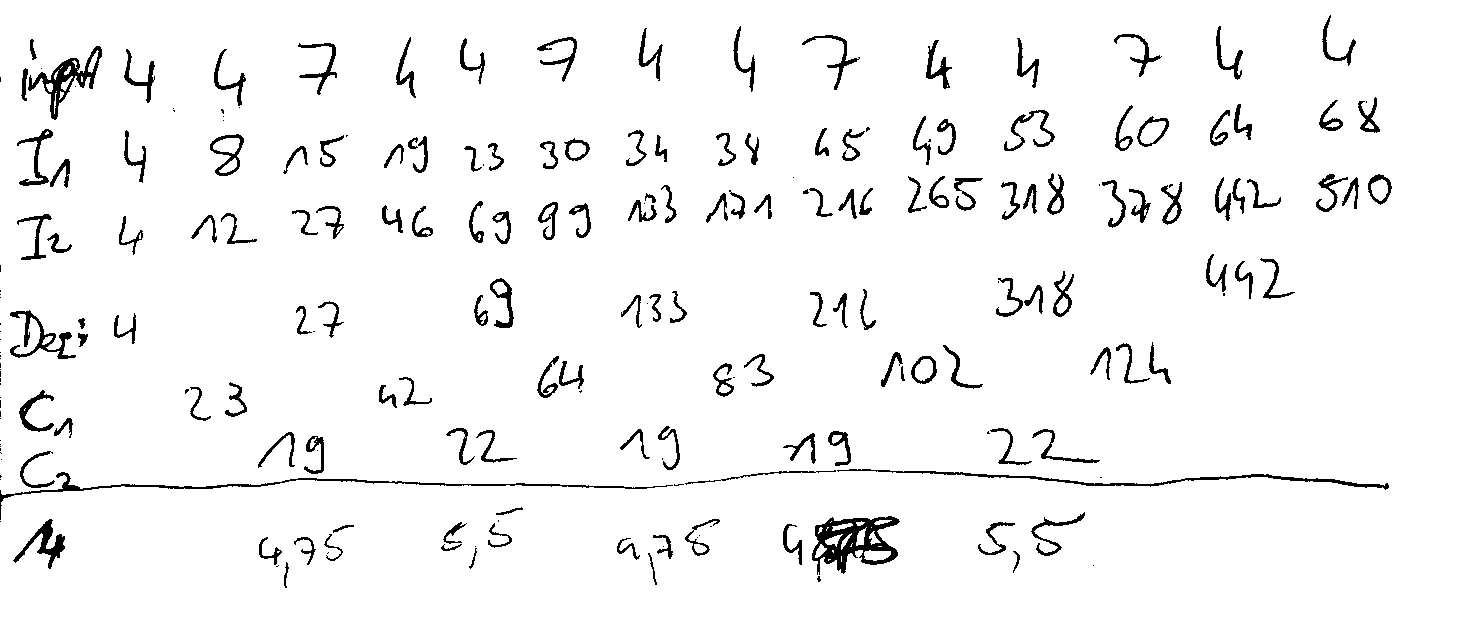 input 4 4 7 4 4 7 4 4 7 4 4 7 4 4
I1 4 8 15 19 23 30 34 38 45 49 53 60 64 68
I2 4 12 27 46 69 99 133 171 216 265 318 378 442 510
Dezi 4 27 69 133 216 318 442
C1 23 42 64 83 102 124
C2 19 22 19 19 22
4,75 5,5 4,75 5,5